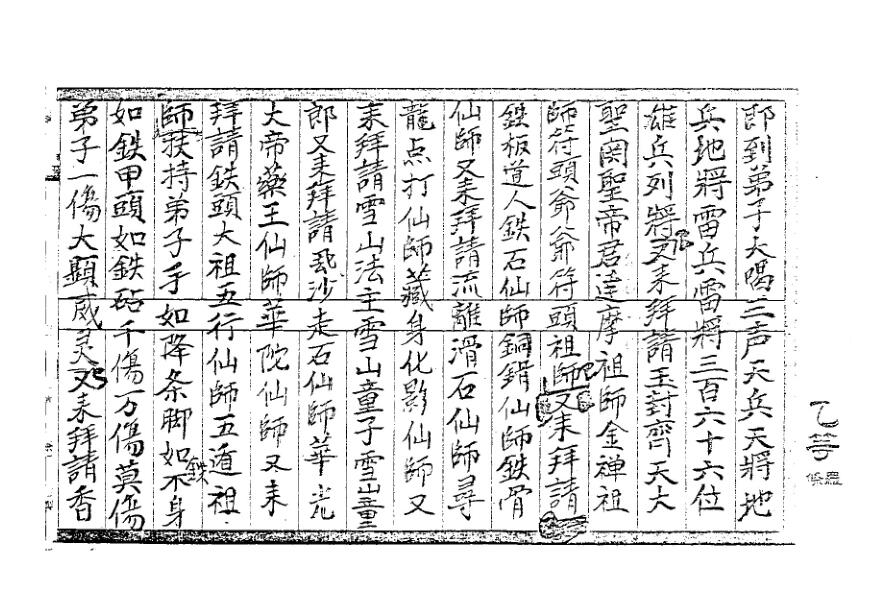 即到弟子大喝三声天兵天將地
兵地將雷兵雷將三百六十六位
雄兵列將又耒拜請玉封齊天大
聖関聖帝君達摩祖師金禅祖
師符頭爺爺符頭祖師又耒拜請
鉄板道人鉄石仙師銅錯仙師鉄骨
仙師又耒拜請流離滑石仙師尋
龍点打仙師藏身化影仙師又
耒拜請雪山法主雪山童子雪山童
郎又耒拜請飛沙走石仙師華光
大帝藥王仙師華陀仙師又耒
拜請鉄頭大祖五行仙師五遁祖
師扶持弟子手如降条脚如不身
鉄
如鉄甲頭如鉄砧千傷万傷莫傷
弟子一傷大顯威灵又耒拜請香